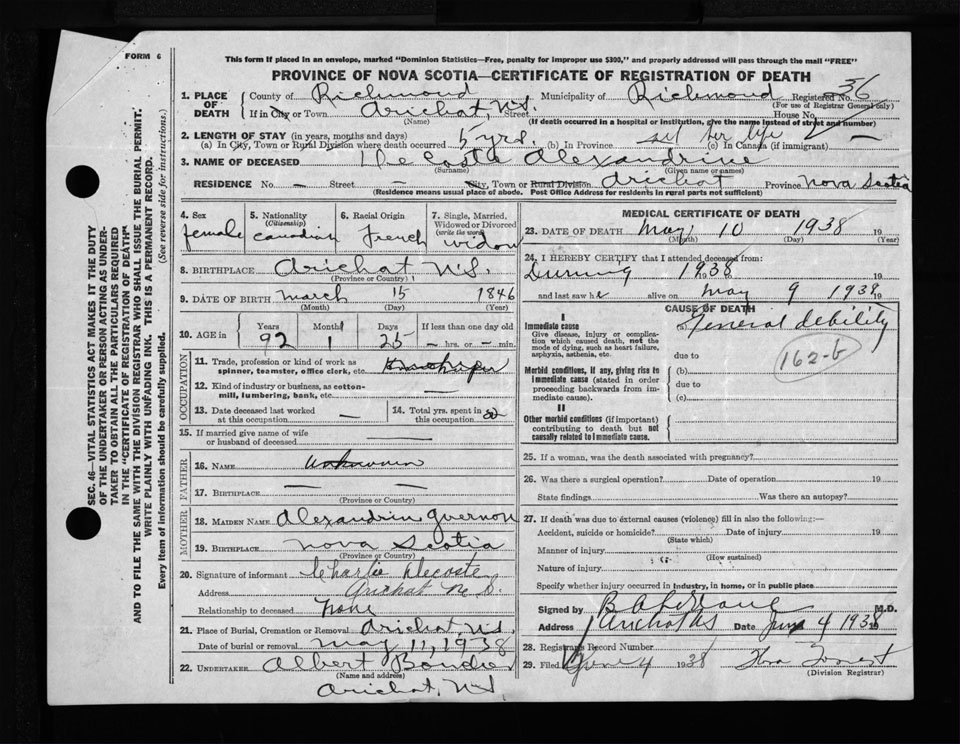 FORM 6
This form if placed in an envelope, marked "Dominion Statistics—Free, penalty for improper use $300," and properly addressed will pass through the mail "FREE"
PROVINCE OF NOVA SCOTIA—CERTIFICATE OF REGISTRATION OF DEATH
1. PLACE OF DEATH
County of Richmond Municipality of Richmond Registered No. 36
(For use of Registrar General only)
If in City or Town Arichat, N.S. Street House No.
(Name) (If death occurred in a hospital or institution, give the name instead of street and number)
2. LENGTH OF STAY (in years, months and days)
(a) In City, Town or Rural Division where death occurred 5 yrs. (b) In Province all her life (c) In Canada (if immigrant) —
3. NAME OF DECEASED DeCoste Alexandrine
(Surname) (Given name or names)
RESIDENCE No. — Street — City, Town or Rural Division Arichat Province Nova Scotia
(Residence means usual place of abode. Post Office Address for Residents in rural parts not sufficient)
4. Sex female
5. Nationality (Citizenship) Canadian
6. Racial Origin French
7. Single, Married, Widowed or Divorced (write the word) widow
8. BIRTHPLACE Arichat N.S.
(Province or Country)
9. DATE OF BIRTH March 15 1846
(Month) (Day) (Year)
10. AGE in Years 92 Months 1 Days 25 If less than one day old — hrs. or — min.
OCCUPATION
11. Trade, profession or kind of work as spinner, teamster, office clerk, etc. Housekeeper
12. Kind of industry or business, as cotton-mill, lumbering, bank, etc. —
13. Date deceased last worked at this occupation —
14. Total yrs. spent in this occupation
15. If married give name of wife or husband of deceased —
FATHER
16. NAME unknown
17. BIRTHPLACE — —
(Province or Country)
MOTHER
18. MAIDEN NAME Alexandrin Guernon
19. BIRTHPLACE Nova Scotia
(Province or Country)
20. Signature of informant Charlie Decoste
Address Arichat N.S.
Relationship to deceased None
21. Place of Burial, Cremation or Removal Arichat, N.S.
Date of burial or removal May 11, 1938
22. UNDERTAKER Albert Boudro
(Name and address)
Arichat, N.S.
MEDICAL CERTIFICATE OF DEATH
23. DATE OF DEATH May 10 1938 19
(Month) (Day) (Year)
24. I HEREBY CERTIFY that I attended deceased from:
During 1938 19
and last saw h alive on May 9 1938 19
CAUSE OF DEATH
I
Immediate cause
Give disease, injury or complication which caused death, not the mode of dying, such as heart failure, asphyxia, asthenia, etc.
General debility
162-b
due to
Morbid conditions, if any, giving rise to immediate cause (stated in order proceeding backwards from immediate cause).
(b)
due to
(c)
II
Other morbid conditions (if important) contributing to death but not causally related to immediate cause.
25. If a woman, was the death associated with pregnancy?
26. Was there a surgical operation? Date of operation 19
State findings Was there an autopsy?
27. If death was due to external causes (violence) fill in also the following:—
Accident, suicide or homicide? Date of injury 19
(State which)
Manner of injury
(How sustained)
Nature of injury
Specify whether injury occurred in industry, in home, or in public place
Signed by M.D.
Address Arichat NS Date June 4 1938 19
28. Registrar's Record Number
29. Filed June 4 1938
(Division Registrar)
SEC. 46—VITAL STATISTICS ACT MAKES IT THE DUTY
OF THE UNDERTAKER OR PERSON ACTING AS UNDERTAKER TO OBTAIN ALL THE PARTICULARS REQUIRED
IN THE "CERTIFICATE OF REGISTRATION OF DEATH"
AND TO FILE THE SAME WITH THE DIVISION REGISTRAR WHO SHALL ISSUE THE BURIAL PERMIT.
WRITE PLAINLY WITH UNFADING INK. THIS IS A PERMANENT RECORD.
Every item of information should be carefully supplied. (See reverse side for instructions.)